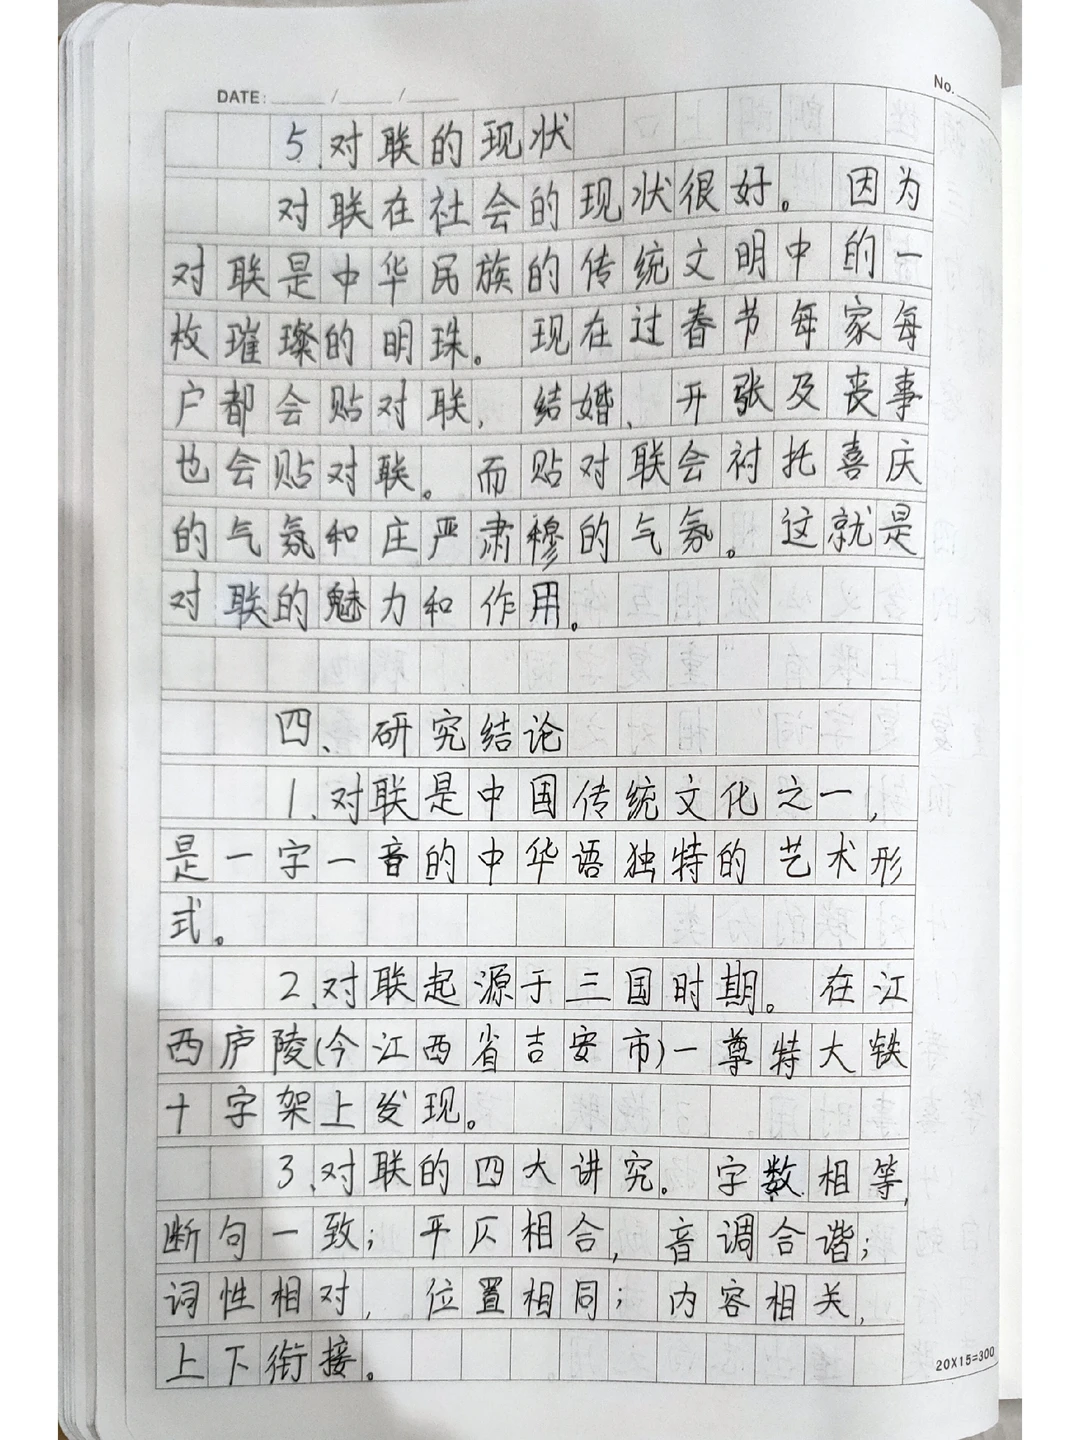 No.
DATE: / /
5.对联的现状
对联在社会的现状很好。因为
对联是中华民族的传统文明中的一
枚璀璨的明珠。现在过春节每家每
户都会贴对联，结婚、开张及丧事
也会贴对联。而贴对联会衬托喜庆
的气氛和庄严肃穆的气氛。这就是
对联的魅力和作用。
四、研究结论
1.对联是中国传统文化之一，
是一字一音的中华语独特的艺术形
式。
2.对联起源于三国时期。在江
西庐陵(今江西省吉安市)一尊特大铁
十字架上发现。
3.对联的四大讲究。字数相等，
断句一致；平仄相合，音调合谐；
词性相对，位置相同；内容相关，
上下衔接。
20X15=300